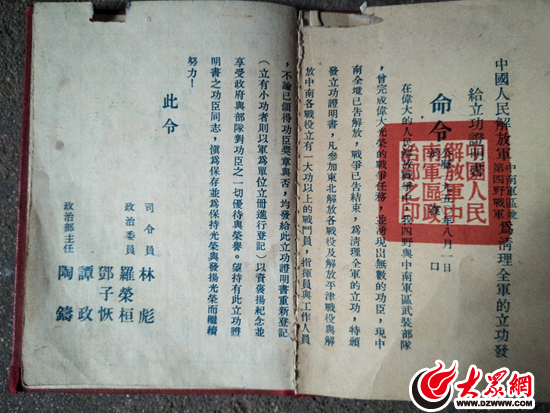 中國人民解放軍 中南軍區暨第四野戰軍 爲清理全軍的立功發
給立功證明書
命令
一九五一年八月一日
在偉大的人民解放戰爭中,我四野與中南軍區武裝部隊
,曾完成偉大光榮的戰爭任務,並湧現出無數的功臣,現中
南全境已告解放,戰爭已告結束,爲清理全軍的立功,特頒
發立功證明書,凡參加東北解放各戰役及解放平津戰役與解
放中南各戰役立有一大功以上的戰鬥員,指揮員與工作人員
,不論已領得功臣獎章與否,均發給此立功證明書重新登記
(立有小功者則以軍爲單位立冊進行登記)以資褒揚紀念並
享受政府與部隊對功臣之一切優待與榮譽。望持有此立功證
明書之功臣同志,愼爲保存並爲保持光榮與發揚光榮而繼續
努力!
此令
司令員 林彪
政治委員 羅榮桓
鄧子恢
譚政
政治部主任 陶鑄
人民
解放軍中
南軍區
大眾網
WWW.DZWWW.COM